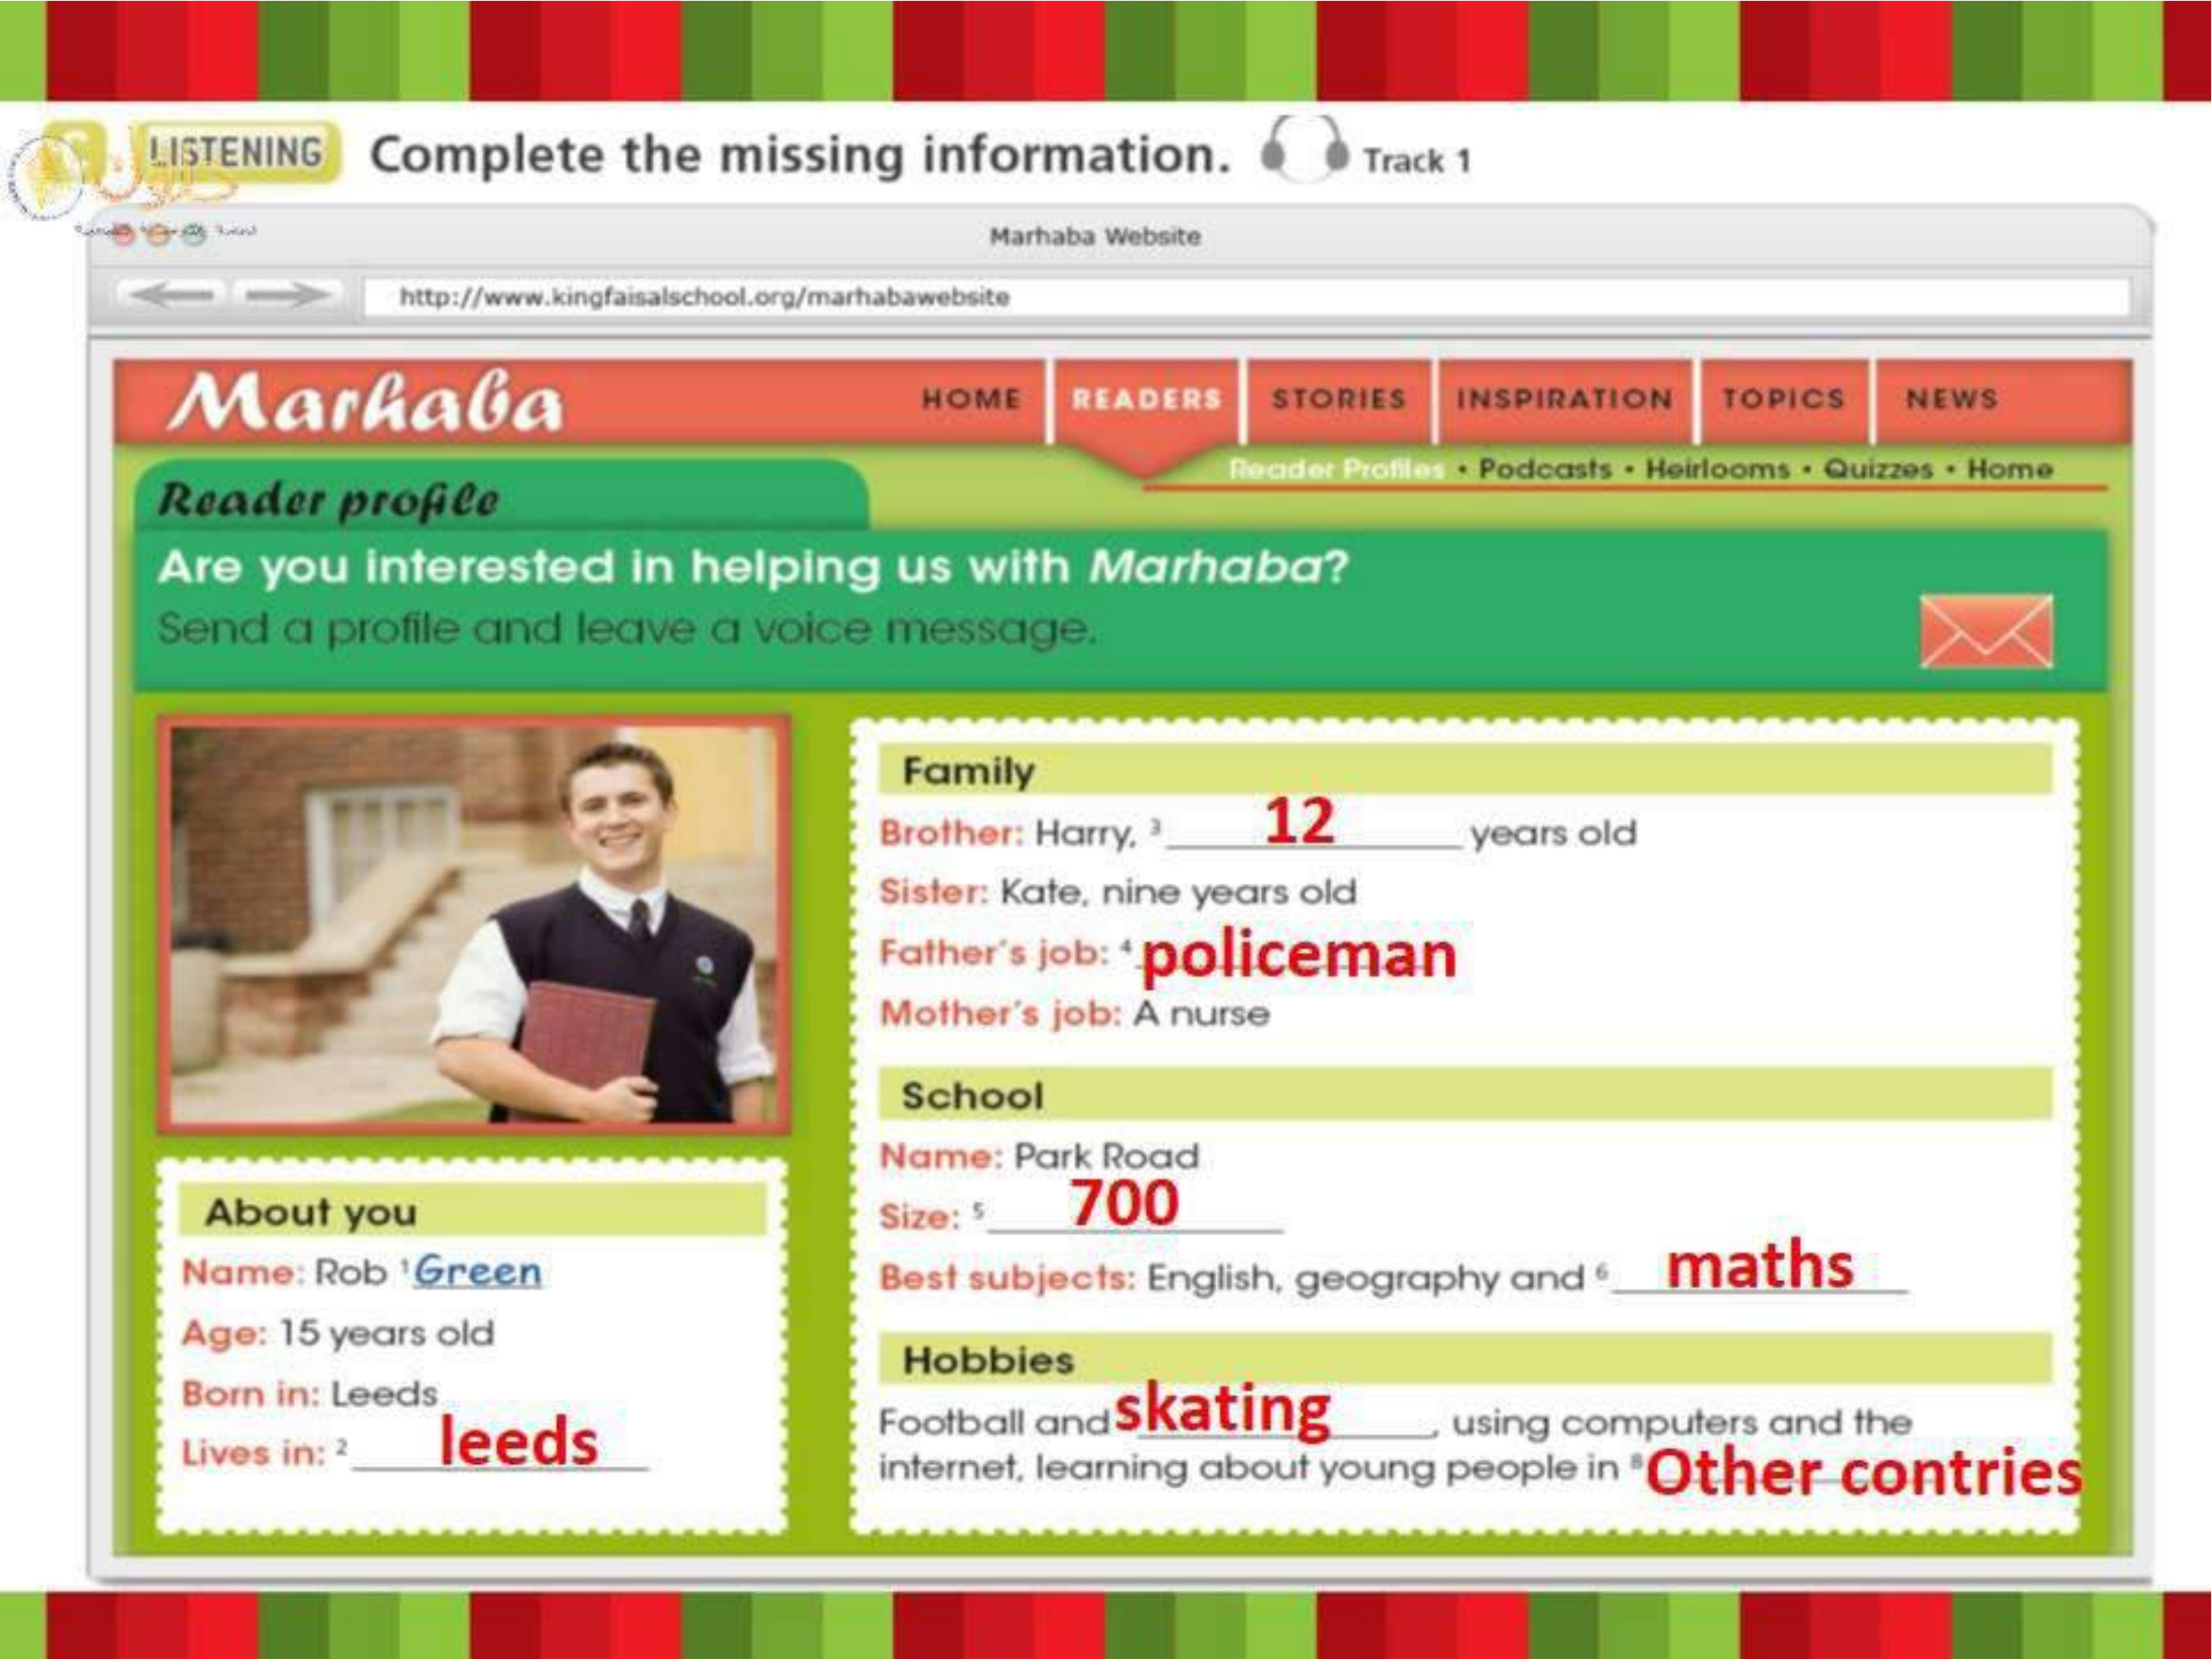 LISTENING Complete the missing information. Track 1
Marhaba Website
http://www.kingfaisalschool.org/marhabawebsite
Marhaba HOME READERS STORIES INSPIRATION TOPICS NEWS
Reader Profiles • Podcasts • Heirlooms • Quizzes • Home
Reader profile
Are you interested in helping us with Marhaba?
Send a profile and leave a voice message.
About you
Name: Rob 1 Green
Age: 15 years old
Born in: Leeds
Lives in: 2 leeds
Family
Brother: Harry, 3 12 years old
Sister: Kate, nine years old
Father's job: 4 policeman
Mother's job: A nurse
School
Name: Park Road
Size: 5 700
Best subjects: English, geography and 6 maths
Hobbies
Football and skating, using computers and the
internet, learning about young people in 8 Other contries